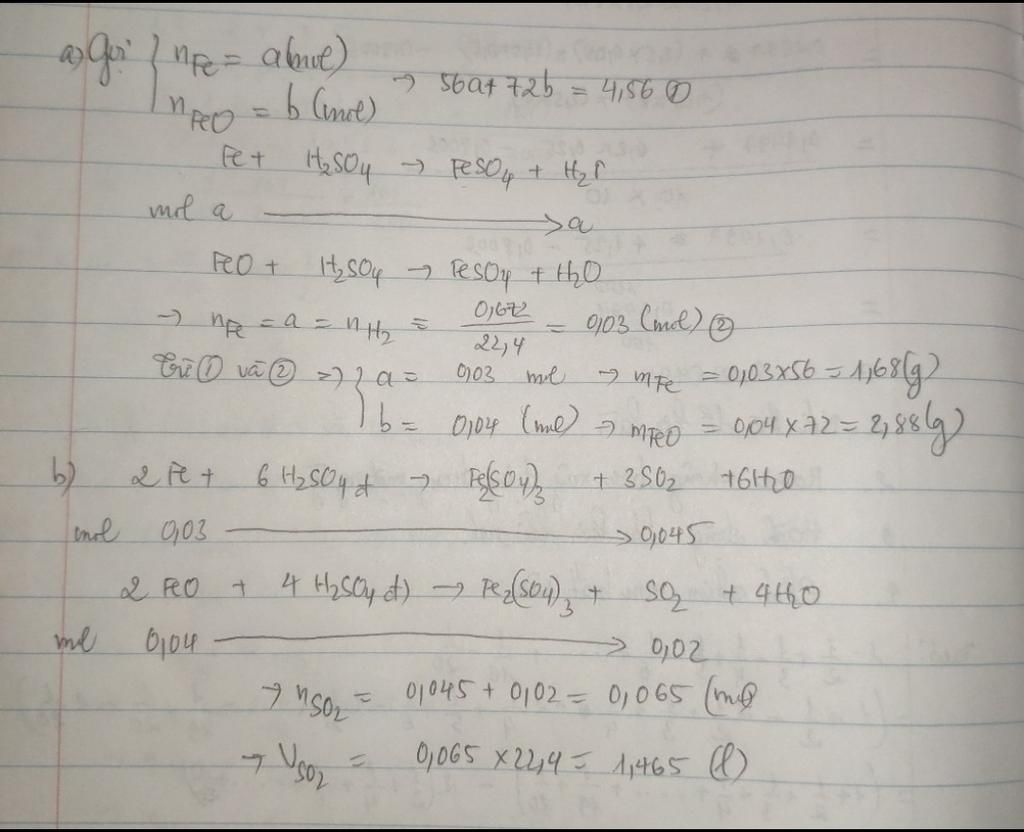 a) Gọi { nFe = a(mol)
nFeO = b (mol) → 56a + 72b = 4,56 ①
Fe + H2SO4 → FeSO4 + H2↑
mol a ⟶ a
FeO + H2SO4 → FeSO4 + H2O
→ nFe = a = nH2 = 0,672/22,4 = 0,03 (mol) ②
Từ ① và ② => { a = 0,03 mol → mFe = 0,03 x 56 = 1,68 (g)
b = 0,04 (mol) → mFeO = 0,04 x 72 = 2,88 (g)
b) 2 Fe + 6 H2SO4 đ → Fe2(SO4)3 + 3SO2 + 6H2O
mol 0,03 ⟶ 0,045
2 FeO + 4 H2SO4 đ) → Fe2(SO4)3 + SO2 + 4H2O
mol 0,04 ⟶ 0,02
→ nSO2 = 0,045 + 0,02 = 0,065 (mol)
→ VSO2 = 0,065 x 22,4 = 1,465 (l)